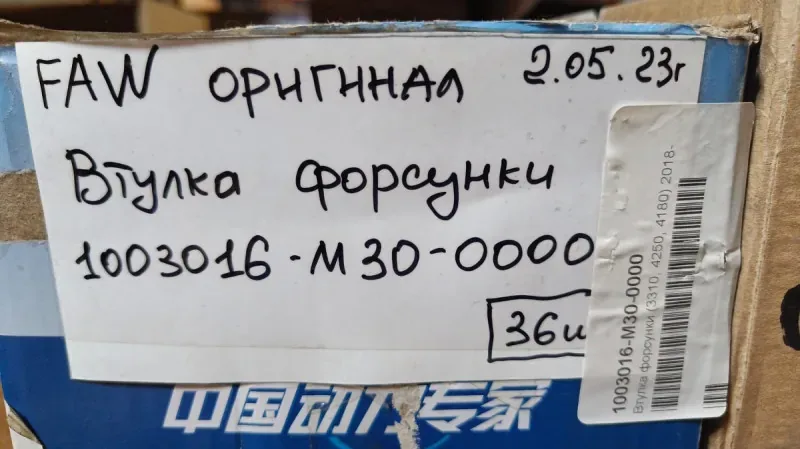 FAW ОРИГИНАЛ 2.05.23г
Втулка форсунки
1003016-М30-0000
36ш
1003016-M30-0000
Втулка форсунки (3310, 4250, 4180) 2018-
中国动力专家